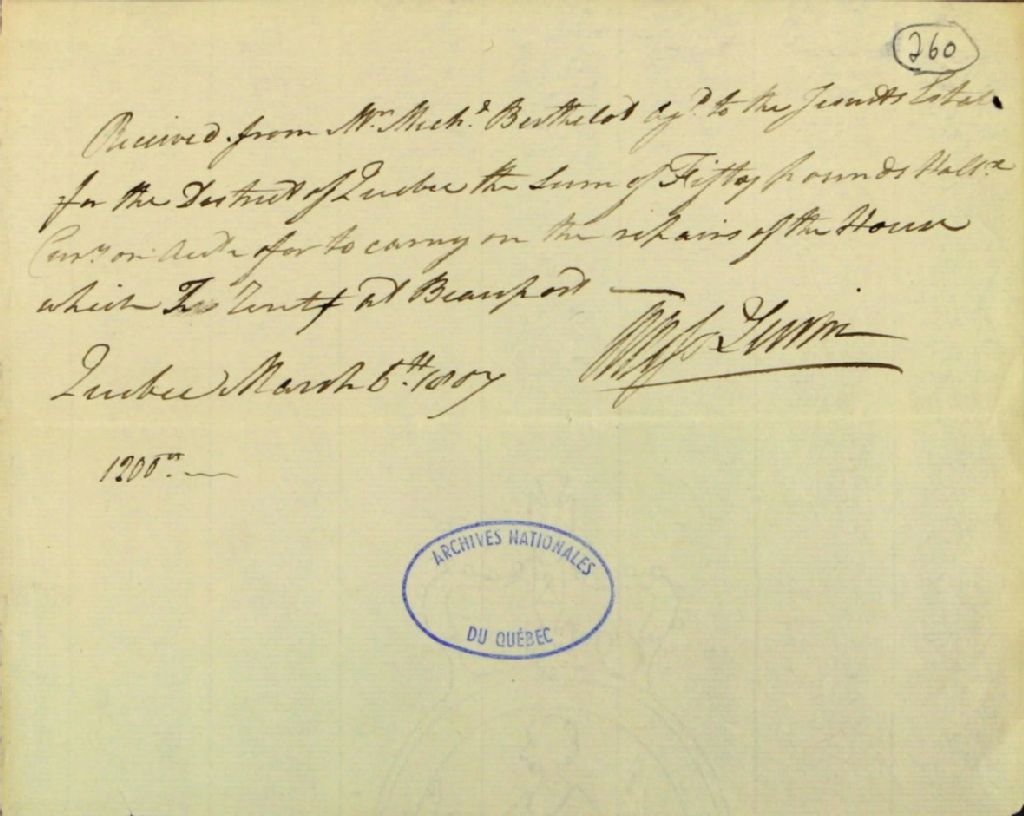 260
Received from Mr. Mich.l Berthelot Ag.t to the Jesuits Estate
for the District of Quebec the Sum of Fifty pounds Half.x
Cur.y on for to carry on the repairs of the House
which I at Beauport —
Quebec March 6.th 1807
1200
ARCHIVES NATIONALES
DU QUÉBEC